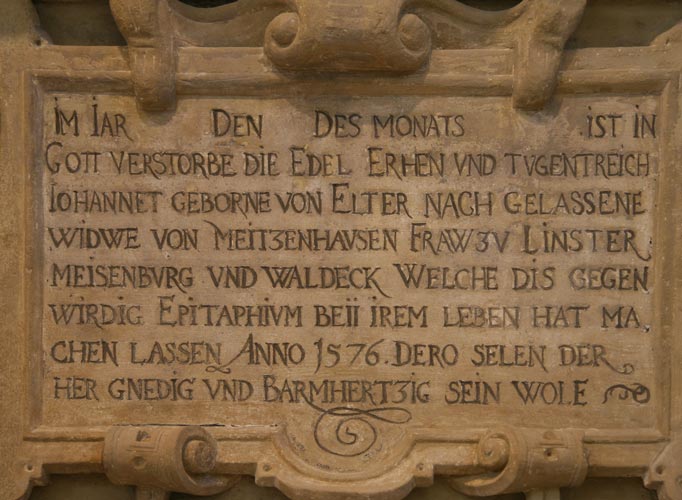 IM IAR DEN DES MONATS IST IN
GOTT VERSTORBE DIE EDEL ERHEN VND TVGENTREICH
IOHANNET GEBORNE VON ELTER NACH GELASSENE
WIDWE VON MEITZENHAVSEN FRAW ZV LINSTER
MEISENBVRG VND WALDECK WELCHE DIS GEGEN
WIRDIG EPITAPHIVM BEII IREM LEBEN HAT MA
CHEN LASSEN ANNO 1576. DERO SELEN DER
HER GNEDIG VND BARMHERTZIG SEIN WOLE